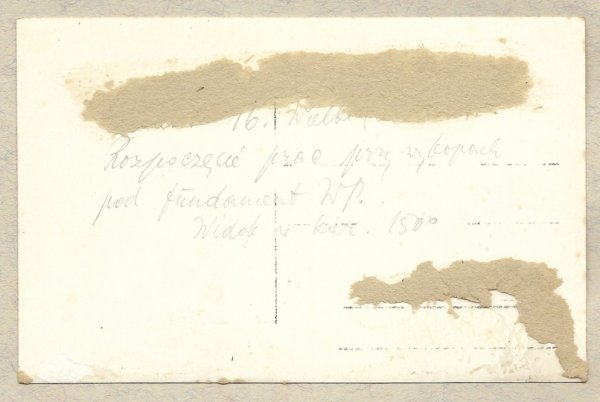 16. Wielb
Rozpoczęcie prac przy wykopach
pod fundament WP.
Widok w kier. 150°